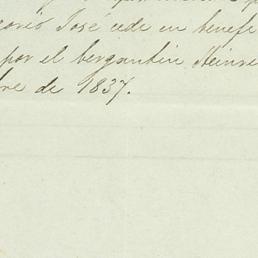 José cede en benefi
por el bergantin Heinre
bre de 1837.